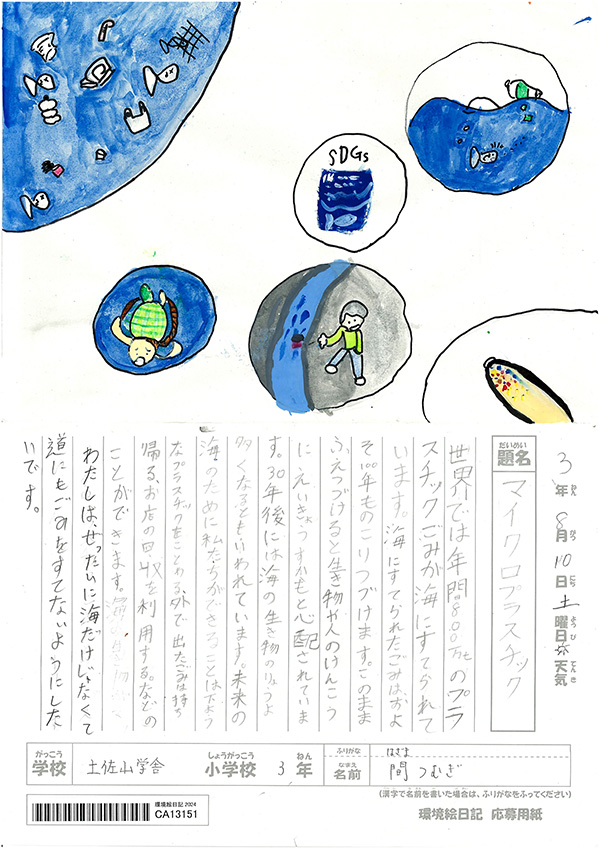 SDGs
3年8月10日土曜日 天気
ねん がつ にち ようび てんき
だいめい
題名
マイクロプラスチック
世界では年間800万tのプラ
スチックごみが海にすてられて
います。海にすてられたごみは、およ
そ100年ものこりつづけます。このまま
ふえつづけると生き物や人のけんこう
にえいきょうするかもと心配されていま
す。30年後には海の生き物のりょうよ
多くなるともいわれています。未来の
海のために私たちができることは、
なプラスチックをことわる、外で出たごみは持ち
帰る、お店の回収を利用する。などの
ことができます。
わたしは、ぜったいに海だけじゃなくて
道にもごみをすてないようにした
いです。
がっこう
学校
土佐山学舎
しょうがっこう
小学校
3
ねん
年
ふりがな
はざま
なまえ
名前
間 つむぎ
(漢字で名前を書いた場合は、ふりがなをふってください)
環境絵日記 2024
CA13151
環境絵日記 応募用紙